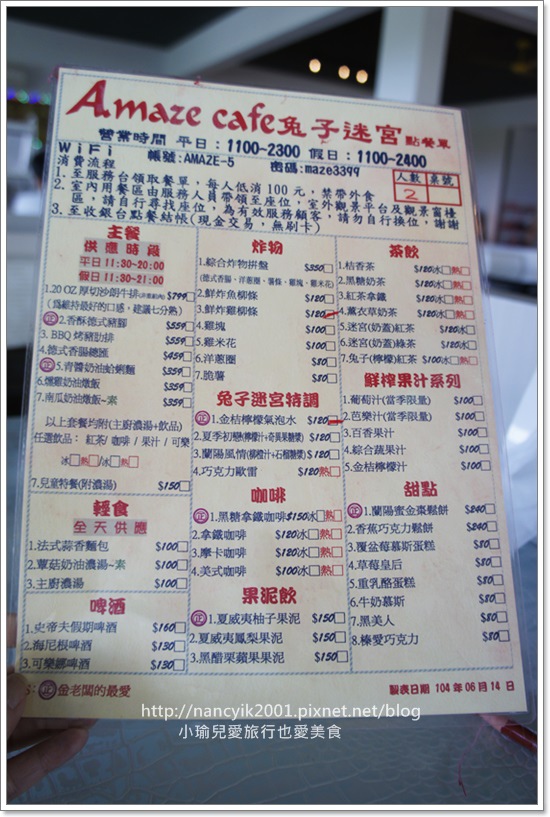 Amaze cafe兔子迷宮 點餐單
營業時間 平日：1100~2300 假日：1100~2400
WiFi 帳號:AMAZE-5 密碼:maze3399
人數 桌號
2
消費流程
1. 至服務台領取餐單，每人低消100元，禁帶外食
2. 室內用餐區由服務人員帶領至座位，室外觀景平台及觀景窗檯
區，請自行尋找座位，為有效服務顧客，請勿自行換位，謝謝
3. 至收銀台點餐結帳(現金交易，無刷卡)
主餐
供應時段
平日11:30-20:00
假日11:30-21:00
1.20 OZ.厚切沙朗牛排 $799
(為維持最好的口感，建議七分熟)
正 2.香酥德式豬腳 $559
3. BBQ烤豬肋排 $559
4.德式香腸總匯 $459
正 5.青醬奶油蛤蜊麵 $359
6.燻雞奶油燉飯 $359
7.南瓜奶油燉飯~素 $359
以上套餐均附(主廚濃湯+飲品)
任選飲品： 紅茶/ 咖啡 / 果汁 / 可樂
冰□熱□/冰□熱□
7.兒童特餐(附濃湯) $150
輕食
全天供應
1.法式蒜香麵包 $100
2.蕈菇奶油濃湯~素 $100
3.主廚濃湯 $100
啤酒
1.史帝夫假期啤酒 $160
2.海尼根啤酒 $130
3.可樂娜啤酒 $130
炸物
1.綜合炸物拼盤 $350
(德式香腸、洋蔥圈、薯條、雞塊、雞米花)
2.鮮炸魚柳條 $120
3.鮮炸雞柳條 $120
4.雞塊 $100
5.雞米花 $100
6.洋蔥圈 $80
7.脆薯 $80
兔子迷宮特調
正 1.金桔檸檬氣泡水 $120
2.夏季初戀(檸檬汁+奇異果糖漿) $120
3.蘭陽風情(柳橙汁+石榴糖漿) $120
4.巧克力歐蕾 $120熱
咖啡
正 1.黑糖拿鐵咖啡$150冰□熱
2.拿鐵咖啡 $120冰□熱
3.摩卡咖啡 $120冰□熱
4.美式咖啡 $100冰□熱
果泥飲
正 1.夏威夷柚子果泥 $150
2.夏威夷鳳梨果泥 $150
3.黑醋栗蘋果果泥 $150
茶飲
1.桔香茶 $120冰□熱
2.黑糖奶茶 $120冰□熱
3.紅茶拿鐵 $120冰□熱
4.薰衣草奶茶 $120冰□熱
5.迷宮(奶蓋)紅茶 $120冰
6.迷宮(奶蓋)綠茶 $120冰
7.兔子(檸檬)紅茶 $100冰□熱
鮮榨果汁系列
1.葡萄汁(當季限量) $120
2.芭樂汁(當季限量) $120
3.百香果汁 $120
4.綜合蔬果汁 $120
5.金桔檸檬汁 $120
甜點
正 1.蘭陽蜜金棗鬆餅 $240
2.香蕉巧克力鬆餅 $240
3.覆盆莓慕斯蛋糕 $80
4.草莓皇后 $80
5.重乳酪蛋糕 $80
6.牛奶慕斯 $80
7.黑美人 $80
8.榛愛巧克力 $80
正 金老闆的最愛
製表日期 104 年 06 月 14 日
http://nancyik2001.pixnet.net/blog
小瑜兒愛旅行也愛美食